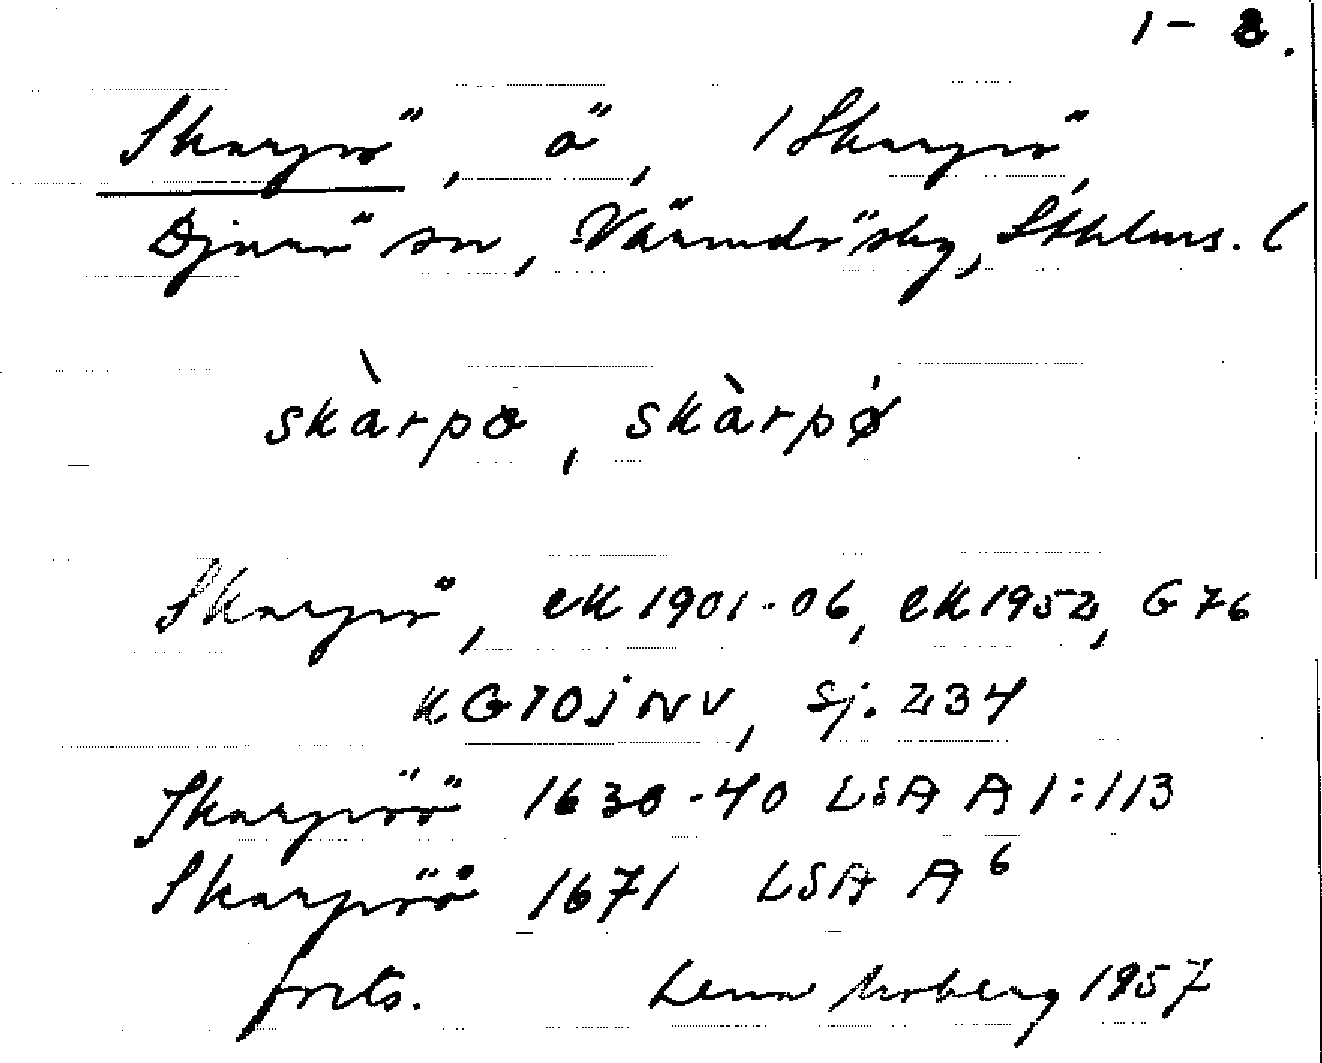 1-3.
Skarpö, ö, /Skarpö
Djurö sn, Värmdö skg, Sthlms. l
skàrpø, skàrpø
Skarpö, EK 1901-06, EK 1952, G 76
KG 10j NV, Sj. 234
Skarpöö 1630-40 LSA A 1:113
Skarpöö 1671 LSA A6
forts. Lena Moberg 1957